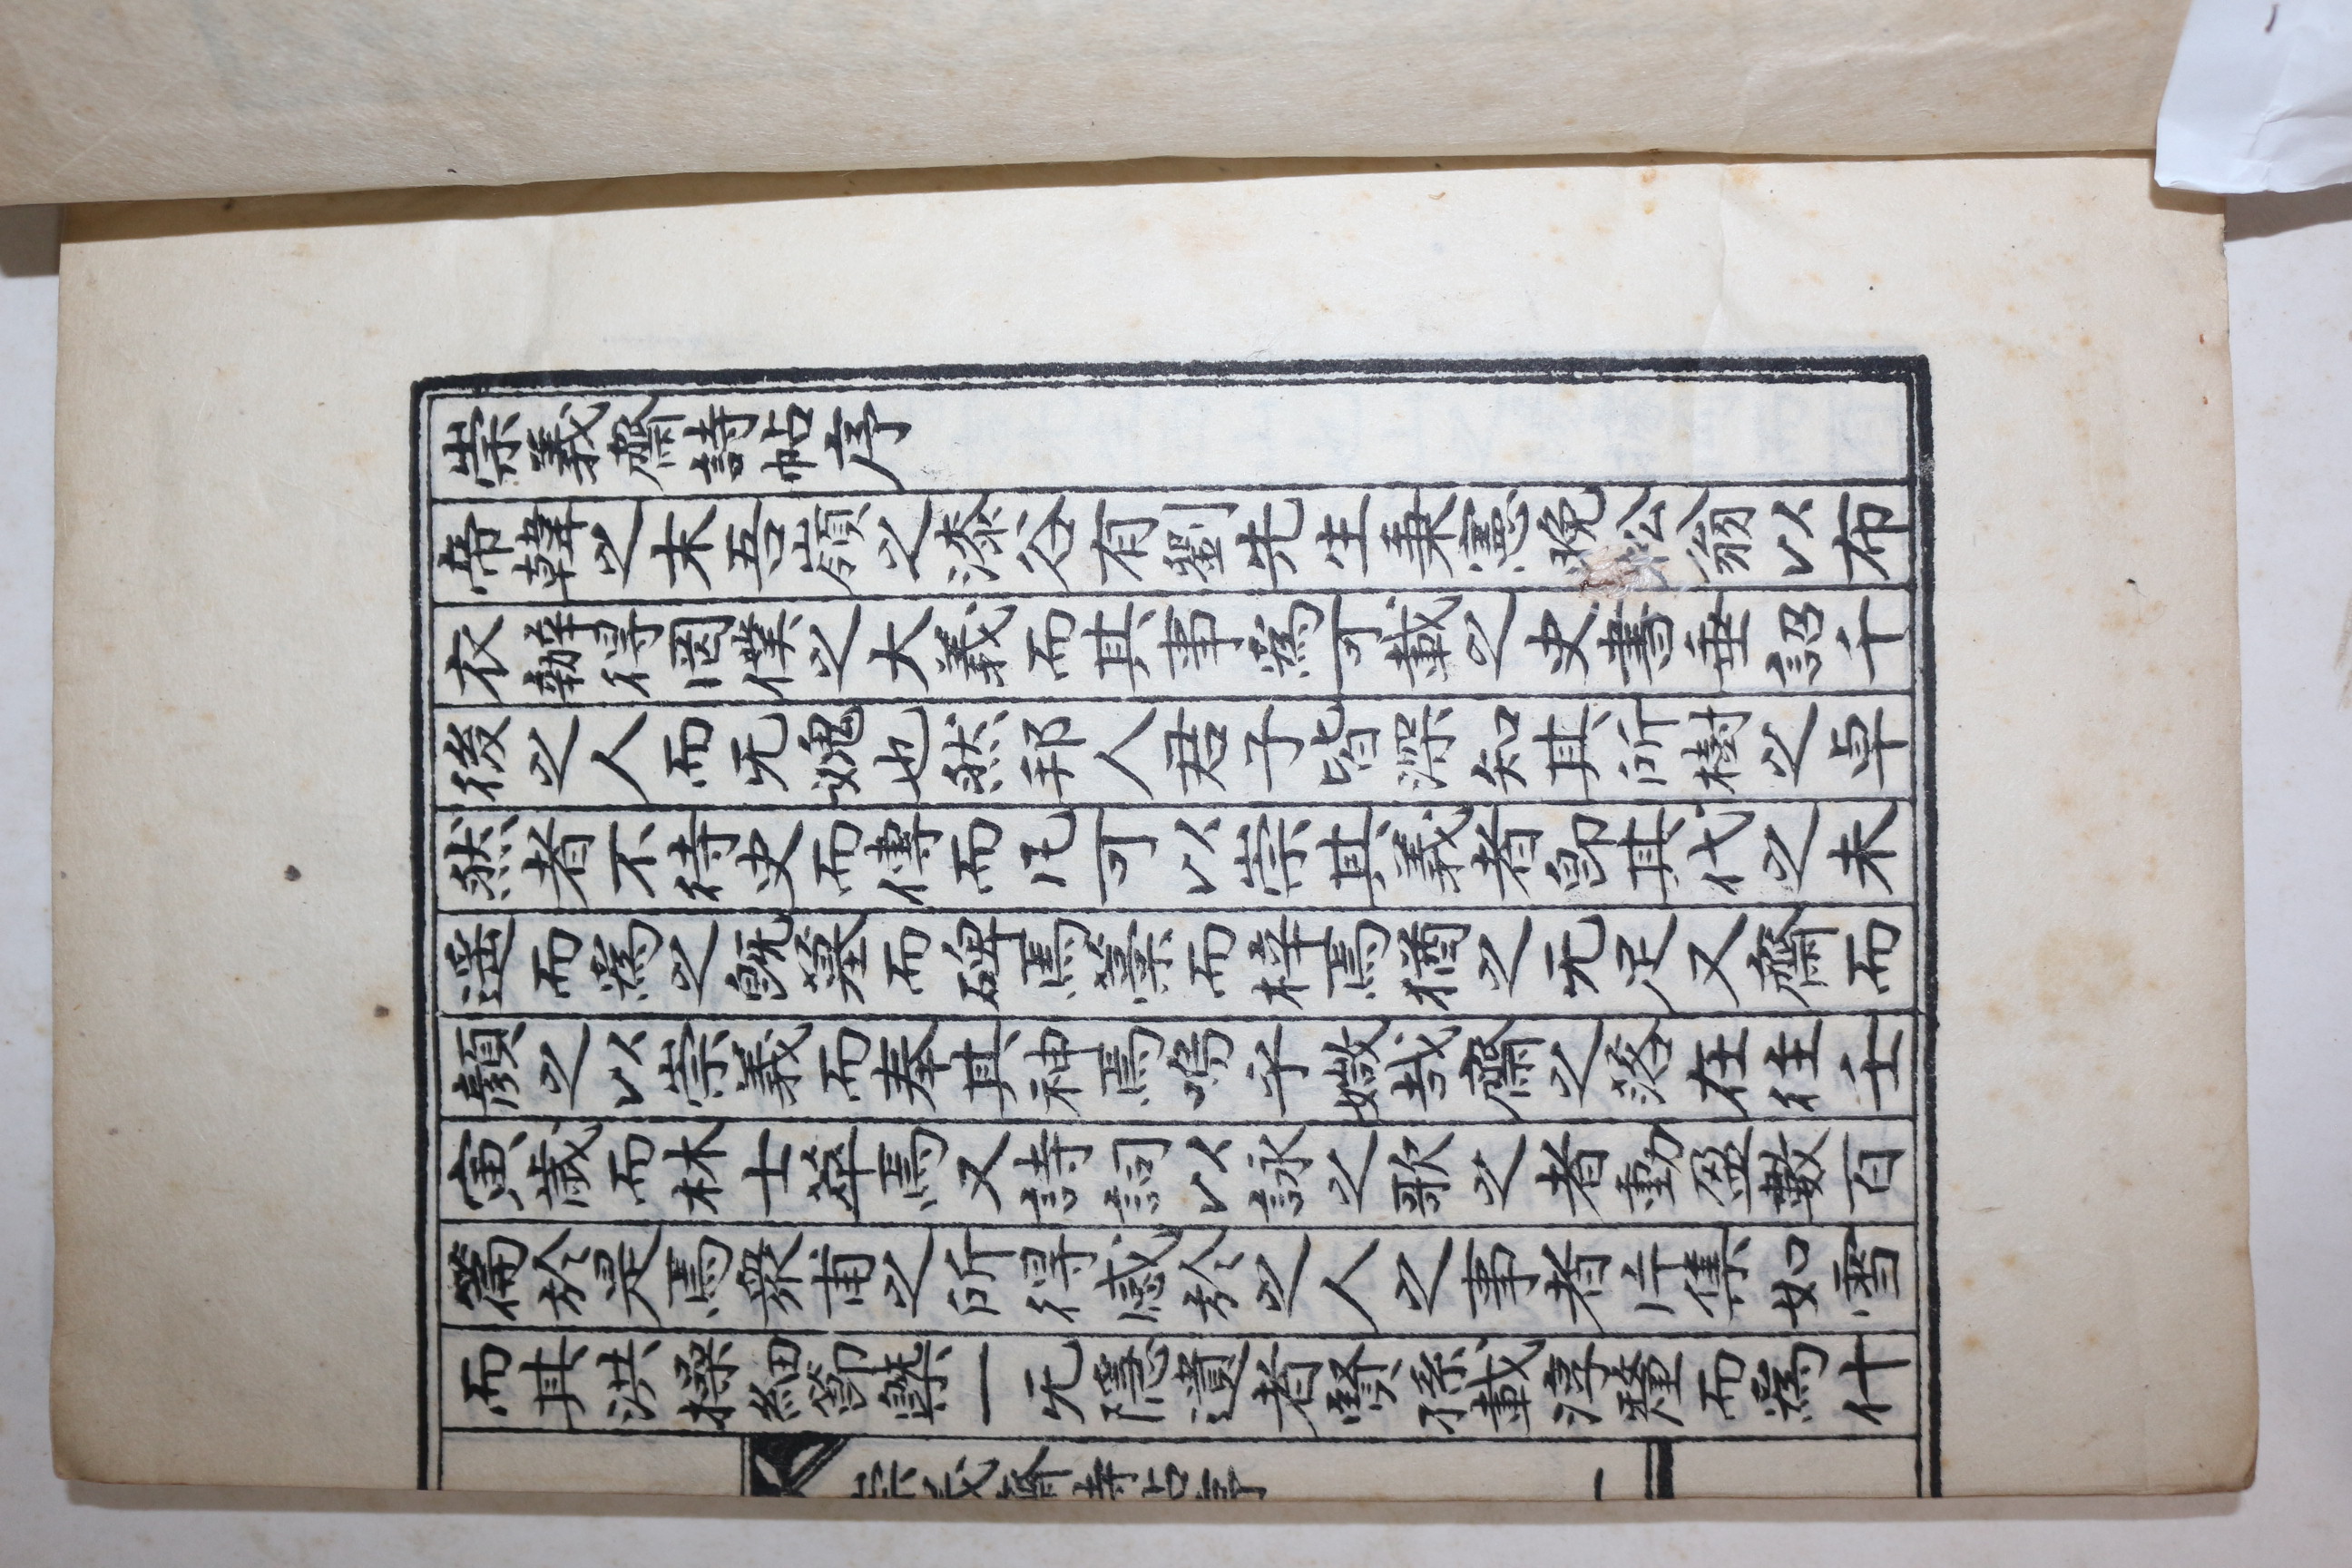 崇義齋詩帖序
帝韓之末吾嶺之漆谷有劉先生秉憲晚松翁以布
衣辦得罔僕之大義而其事爲可載之史書垂詔千
後之人而无媿也然邦人君子皆深知其所樹之卓
然者不待史而傳而凡可以崇其義者卽其代之未
遥而爲之旣墓而碑焉藁而梓焉猶之无足又齋而
顔之以崇義而奉其神焉嗚乎媺哉齋之落在徃壬
寅歲而林士萃焉又詩詞以詠之歌之者動盈數百
篇於是焉衆甫之所得感於之人之事者片集如雪
而其洪操細節槩一无隱遺者賢孫載淳釐而爲什
崇義齋詩帖序
一